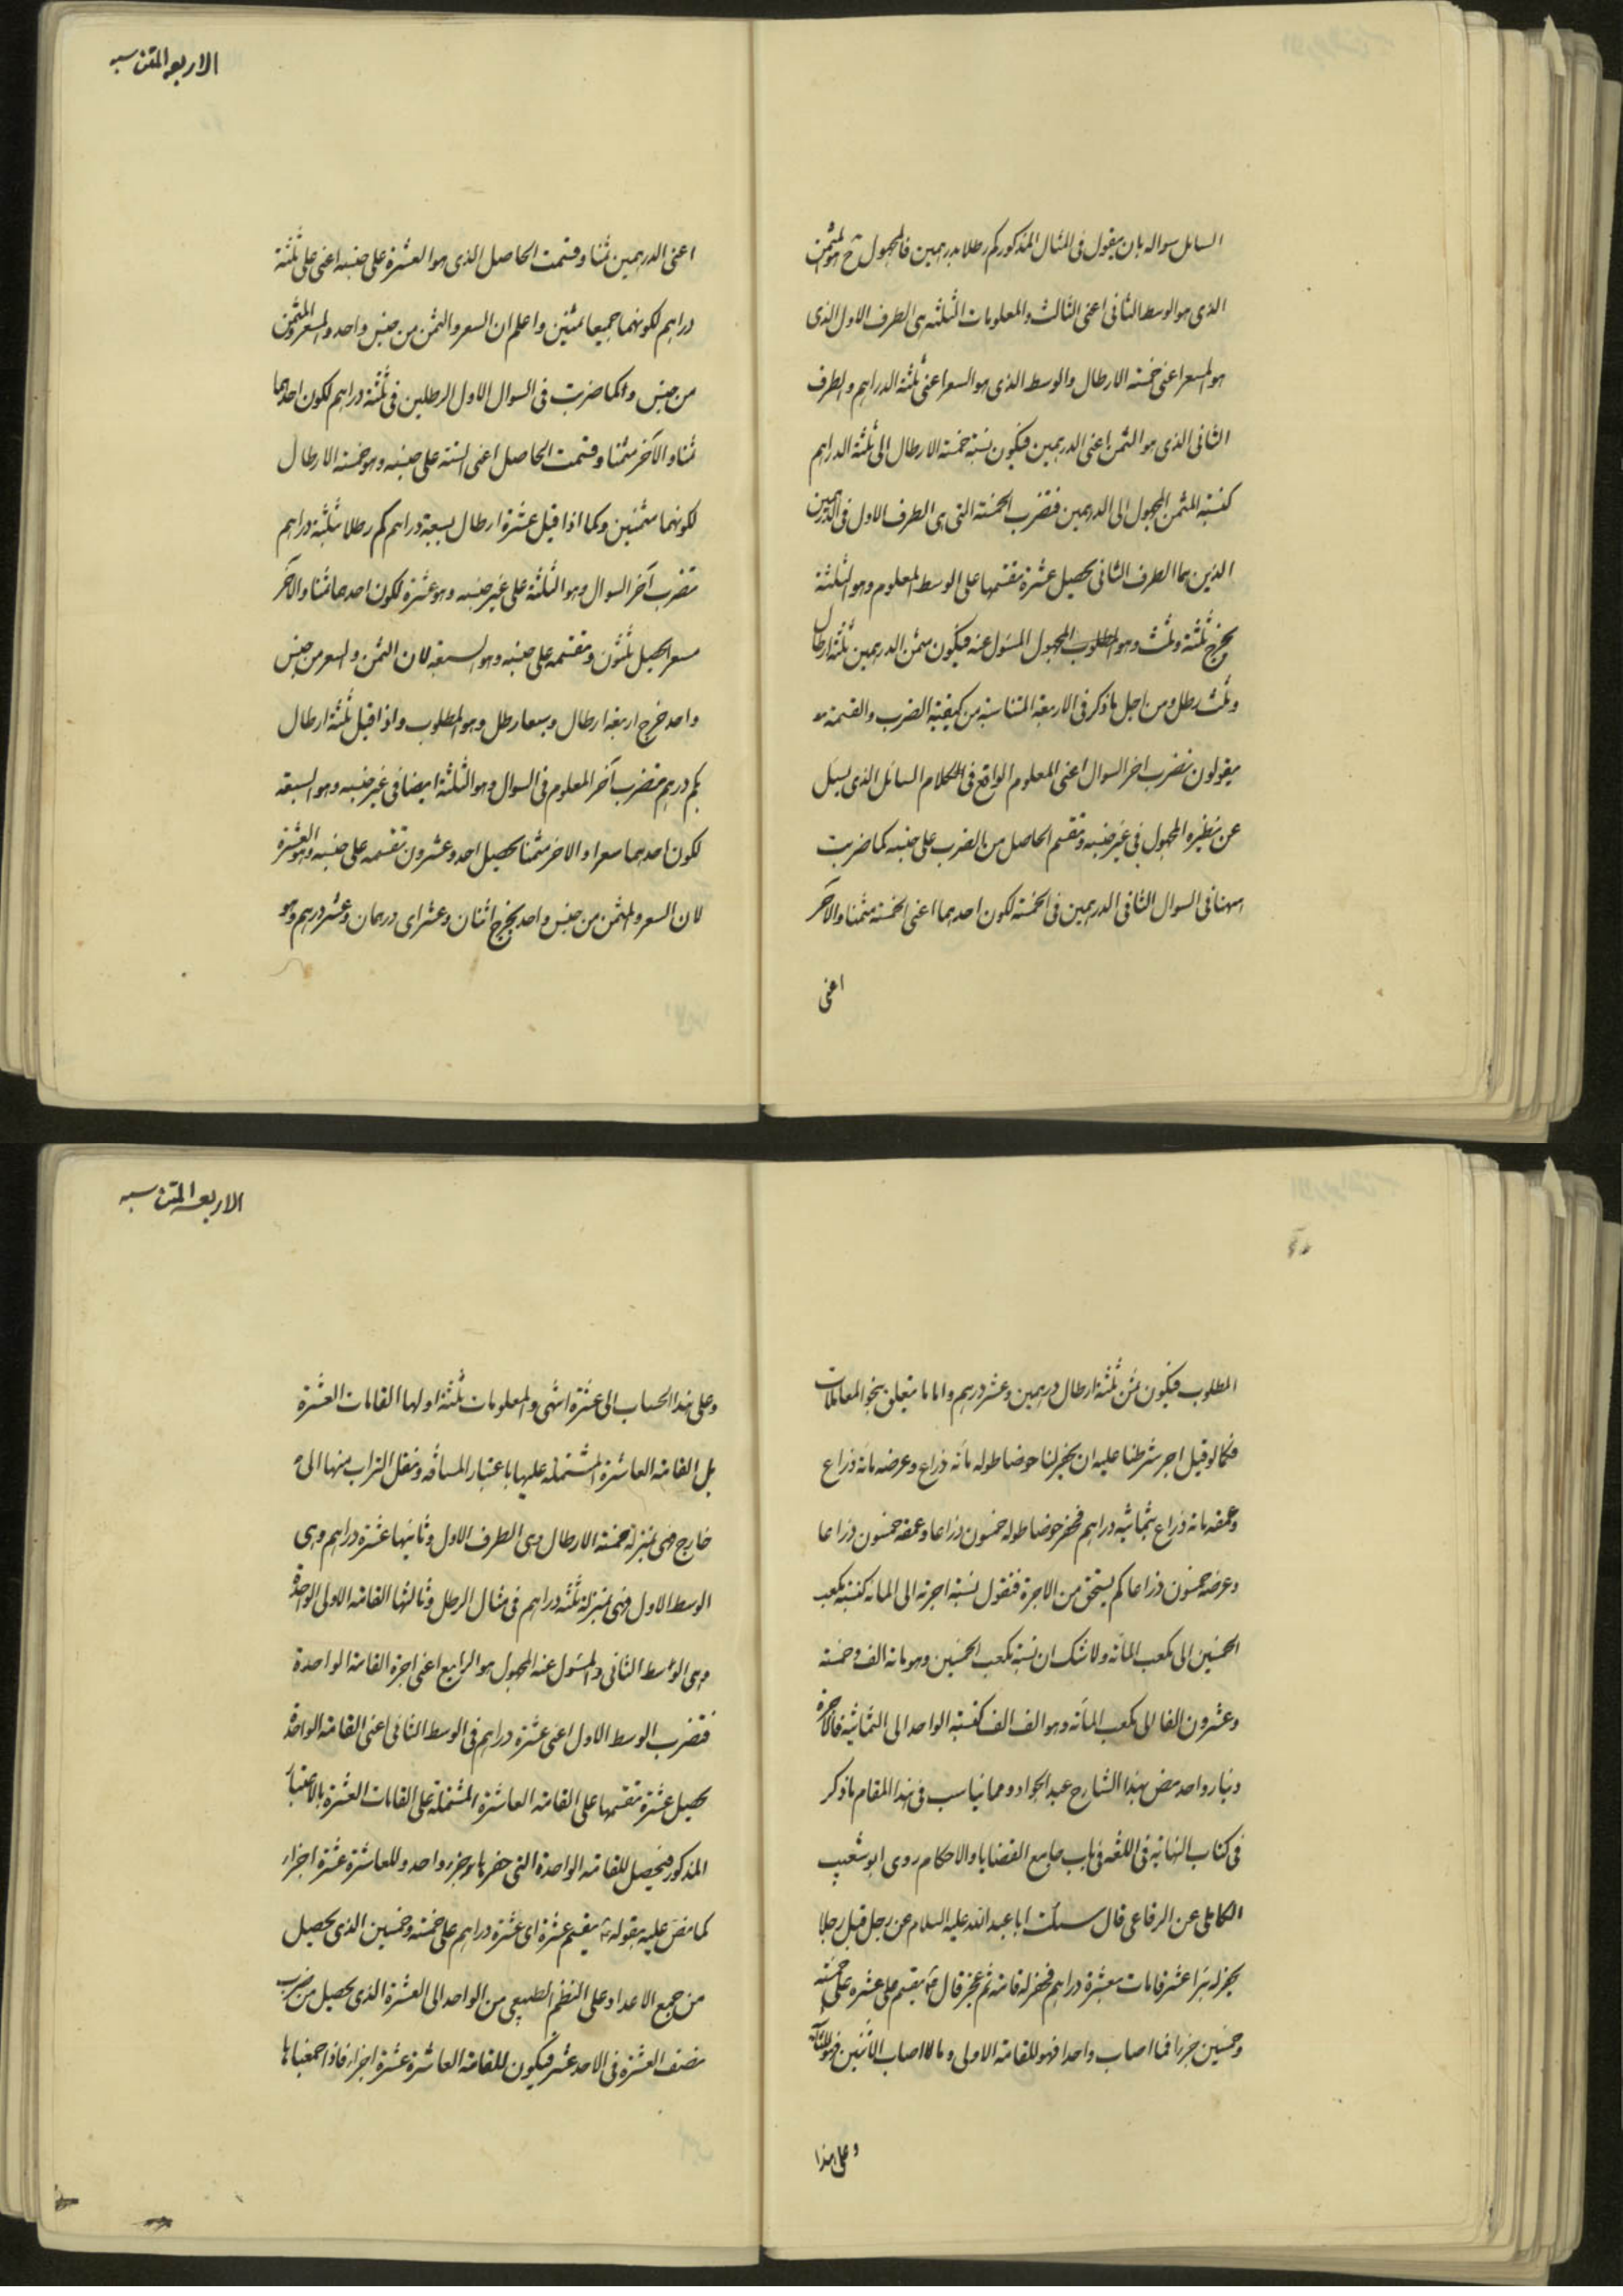 السائل سواله بان يقول فى المثال المذكور كم رطلا بدرهمين فالمجهول ح هو المثمن
الذى هو الوسط الثانى اعنى الثالث والمعلومات الثلثه هى الطرف الاول الذى
هو المسعر اعنى خمسه الارطال والوسط الذى هو السعر اعنى ثلثة الدراهم والطرف
الثانى الذى هو الثمن اعنى الدرهمين فيكون نسبة خمسة الارطال الى ثلثة الدراهم
كنسبة المثمن المجهول الى الدرهمين فتضرب الخمسة التى هى الطرف الاول فى الدرهمين
الذين هما الطرف الثانى يحصل عشرة تقسمها على الوسط المعلوم وهو الثلثة
يخرج ثلثة وثلث وهو المطلوب المجهول المسئول عنه فيكون مثمن الدرهمين ثلثة ارطال
وثلث رطل ومن اجل ما ذكر فى الاربعة المتناسبة من كيفية الضرب والقسمة
يقولون تضرب اخر السوال اعنى المعلوم الواقع فى الكلام السائل الذى يسئل
عن نظيره المجهول فى غير جنسه وتقسم الحاصل من الضرب على جنسه كما ضربت
ههنا فى السوال الثانى الدرهمين فى الخمسة لكون احدهما اعنى الخمسة مثمنا والآخر
اعنى
الاربعه المتناسبه
اعنى الدرهمين ثمنا وقسمت الحاصل الذى هو العشرة على جنسه اعنى على ثلثة
دراهم لكونهما جميعا ثمنين واعلم ان السعر والثمن من جنس واحد والمسعر والمثمن
من جنس وكما ضربت فى السوال الاول الرطلين فى ثلثة دراهم لكون احدهما
ثمنا والآخر مثمنا وقسمت الحاصل اعنى الستة على جنسه وهو خمسة الارطال
لكونهما مثمنين وكما اذا قيل عشرة ارطال بسبعة دراهم كم رطلا بثلثة دراهم
تضرب آخر السوال وهو الثلثة على غير جنسه وهو عشرة لكون احدهما ثمنا والآخر
مسعرا يحصل ثلثون وتقسمه على جنسه وهو السبعه لان الثمن والسعر من جنس
واحد خرج اربعة ارطال وسبعا رطل وهو المطلوب واذا قيل ثلثة ارطال
بكم درهم تضرب آخر المعلوم فى السوال وهو الثلثة ايضا فى غير جنسه وهو السبعة
لكون احدهما سعرا والاخر مثمنا يحصل احد وعشرون تقسمه على جنسه وهو العشرة
لان المسعر والمثمن من جنس واحد يخرج اثنان وعشر اى درهمان وعشر درهم وهو
المطلوب فيكون ثمن ثلثة ارطال درهمين وعشر درهم واما ما يتعلق بنحو المعاملات
فكما لو قيل اجير شرطنا عليه ان يحفر لنا حوضا طوله مائة ذراع وعرضه مائة ذراع
وعمقه مائة ذراع بثمانية دراهم فحفر حوضا طوله خمسون ذراعا وعمقه خمسون ذراعا
وعرضه خمسون ذراعا كم يستحق من الاجرة فنقول نسبة اجرته الى المائة كنسبة مكعب
الخمسين الى مكعب المائة ولا شك ان نسبة مكعب الخمسين وهو مائة الف وخمسة
وعشرون الفا الى مكعب المائة وهو الف الف كنسبة الواحد الى الثمانية فالاجرة
دينار واحد بهذا الشارح عبد الجواد ومما يناسب فى هذا المقام ما ذكر
فى كتاب النهاية فى اللغه فى باب جامع القضايا والاحكام روى ابو شعيب
الكاملى عن الرفاعى قال سئلت ابا عبد الله عليه السلام عن رجل قبل رجلا
يحفر له بئرا عشر قامات بعشرة دراهم فحفر له قامة ثم عجز قال يقسم على عشرة على خمسة
وخمسين جزءا فما اصاب واحدا فهو للقامة الاولى وما اصاب الاثنين فهو للثانية
وعلى هذا
الاربعه المتناسبه
وعلى هذا الحساب الى عشرة انتهى والمعلومات ثلثة اولها القامات العشرة
بل القامة العاشرة المشتملة عليها باعتبار المسافة ونقل التراب منها الى
خارج فهى بمنزلة خمسة الارطال وهى الطرف الاول وثانيها عشرة دراهم وهى
الوسط الاول فهى بمنزلة ثلثة دراهم فى مثال الرطل وثالثها القامة الاولى الواحدة
وهى الوسط الثانى والمسئول عنه المجهول هو الرابع اعنى اجرة القامة الواحدة
فتضرب الوسط الاول اعنى عشرة دراهم فى الوسط الثانى اعنى القامة الواحدة
يحصل عشرة تقسمها على القامة العاشرة المشتملة على القامات العشرة بالاعتبار
المذكور فيحصل للقامة الواحدة التى حفرها جزء واحد وللعاشرة عشرة اجزاء
كما نص عليه بقوله يقسم عشرة اى عشرة دراهم على خمسة وخمسين الذى يحصل
من جمع الاعداد على النظم الطبيعى من الواحد الى العشرة الذى يحصل من ضرب
نصف العشرة فى الاحد عشر فيكون للقامة العاشرة عشرة اجزاء فاذا جمعناها